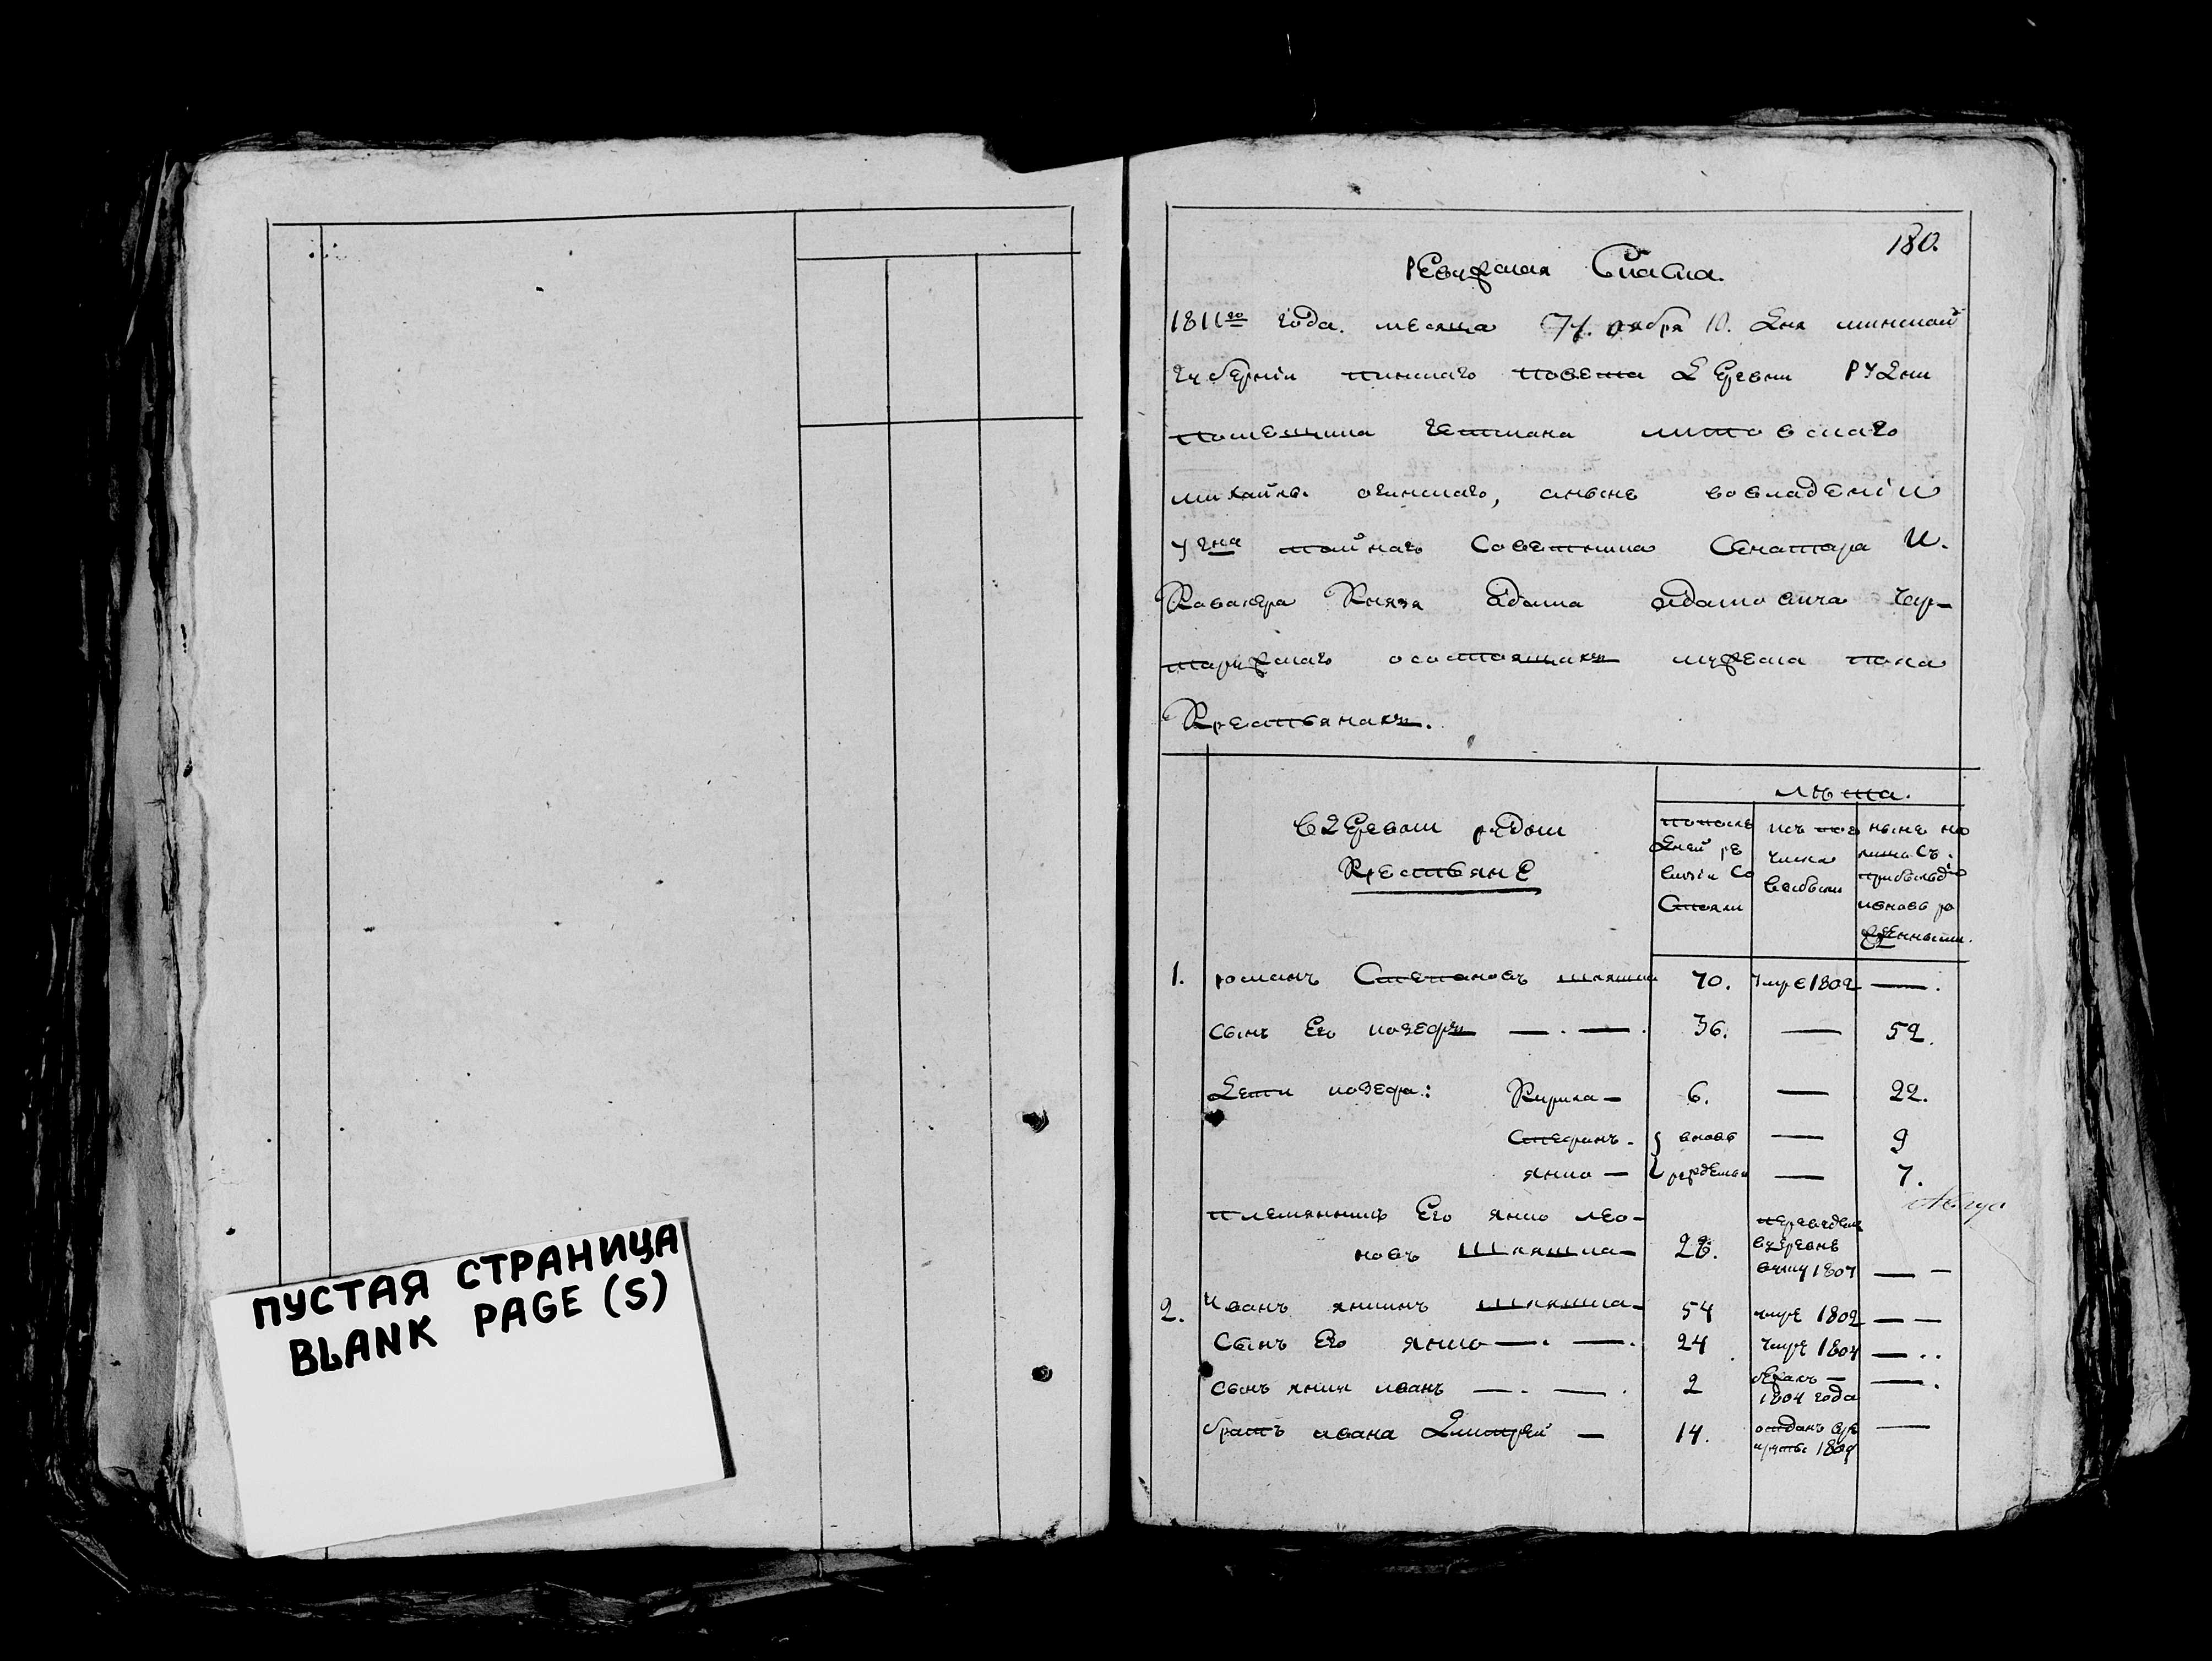 ПУСТАЯ СТРАНИЦА
BLANK PAGE (S)
180.
Ревизская Сказка.
1811го года. месяца 7/. оября 10. Дня минской
губернии пинского повета Деревни Рудни
помещика гетмана литовского
михаила огинского, анынѣ вовладении
у гна тайнаго Советника Сенатора И.
Кавалера Князя Адама Адамовича Чер-
торизскаго осостоящихъ мужеска пола
Крестьянахъ.
лѣта.
вДеревом рудом
Крестьяне
попосле
Дней ре
визіи Со
Стояли
исъ тог
числа
выбыли
ныне на
лицо Съ.
прибылы
ивновь ро
жденными.
1. романъ Степановъ шляшка 70. Умре 1802 — .
Сынъ Его иозефъ — . — . 36. — 52.
Дети иозефа: Кирила — 6. — 22.
Стефанъ. вновь — 9
янко — рожденны — 7.
племянникъ Его янко лео-
новъ Шляшка — 28. переведенъ
вдеревне
1807 — —
2. Иванъ янкинъ шляшка — 54 умре 1802 — —
Сынъ Его янко — . — . 24 умре 1804 — . .
Сынъ янки иванъ — . — . 2 бежалъ —
1804 года — .
братъ ивана Дмитрей — 14. отданъ в ре
круты 1809 —